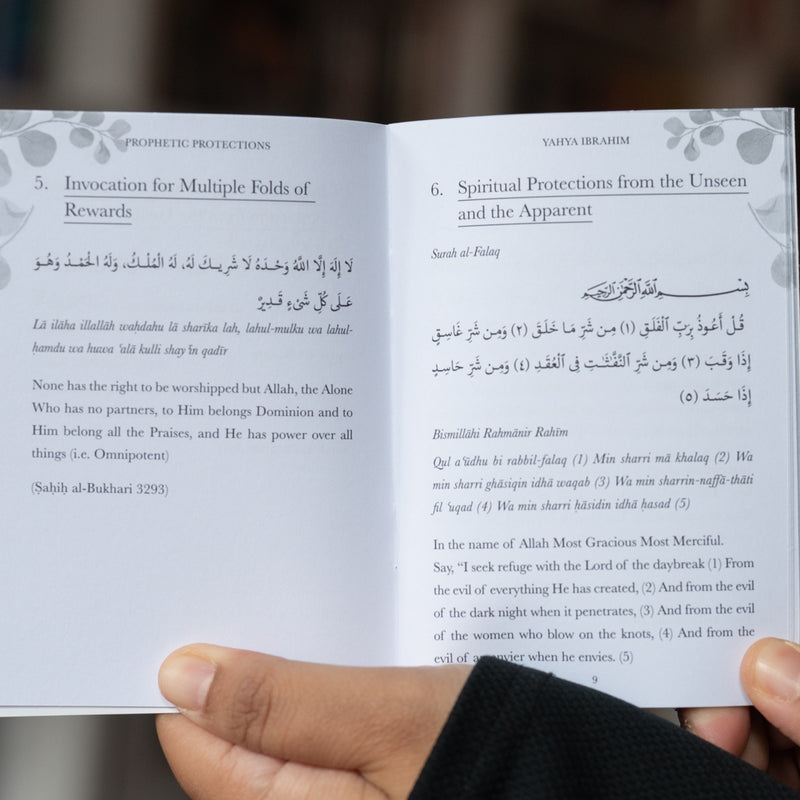 PROPHETIC PROTECTIONS
5. Invocation for Multiple Folds of
Rewards
لَا إِلَهَ إِلَّا اللَّهُ وَحْدَهُ لَا شَرِيكَ لَهُ، لَهُ الْمُلْكُ، وَلَهُ الْحَمْدُ وَهُوَ
عَلَى كُلِّ شَيْءٍ قَدِيرٌ
Lā ilāha illallāh waḥdahu lā sharīka lah, lahul-mulku wa lahul-
ḥamdu wa huwa ‘alā kulli shay’in qadīr
None has the right to be worshipped but Allah, the Alone
Who has no partners, to Him belongs Dominion and to
Him belong all the Praises, and He has power over all
things (i.e. Omnipotent)
(Ṣaḥiḥ al-Bukhari 3293)
YAHYA IBRAHIM
6. Spiritual Protections from the Unseen
and the Apparent
Surah al-Falaq
بِسْمِ اللَّهِ الرَّحْمَٰنِ الرَّحِيمِ
قُلْ أَعُوذُ بِرَبِّ ٱلْفَلَقِ (١) مِن شَرِّ مَا خَلَقَ (٢) وَمِن شَرِّ غَاسِقٍ
إِذَا وَقَبَ (٣) وَمِن شَرِّ ٱلنَّفَّٰثَٰتِ فِى ٱلْعُقَدِ (٤) وَمِن شَرِّ حَاسِدٍ
إِذَا حَسَدَ (٥)
Bismillāhi Rahmānir Rahīm
Qul a‘ūdhu bi rabbil-falaq (1) Min sharri mā khalaq (2) Wa
min sharri ghāsiqin idhā waqab (3) Wa min sharrin-naffā-thāti
fil ‘uqad (4) Wa min sharri ḥāsidin idhā ḥasad (5)
In the name of Allah Most Gracious Most Merciful.
Say, “I seek refuge with the Lord of the daybreak (1) From
the evil of everything He has created, (2) And from the evil
of the dark night when it penetrates, (3) And from the evil
of the women who blow on the knots, (4) And from the
evil of an envier when he envies. (5)
9